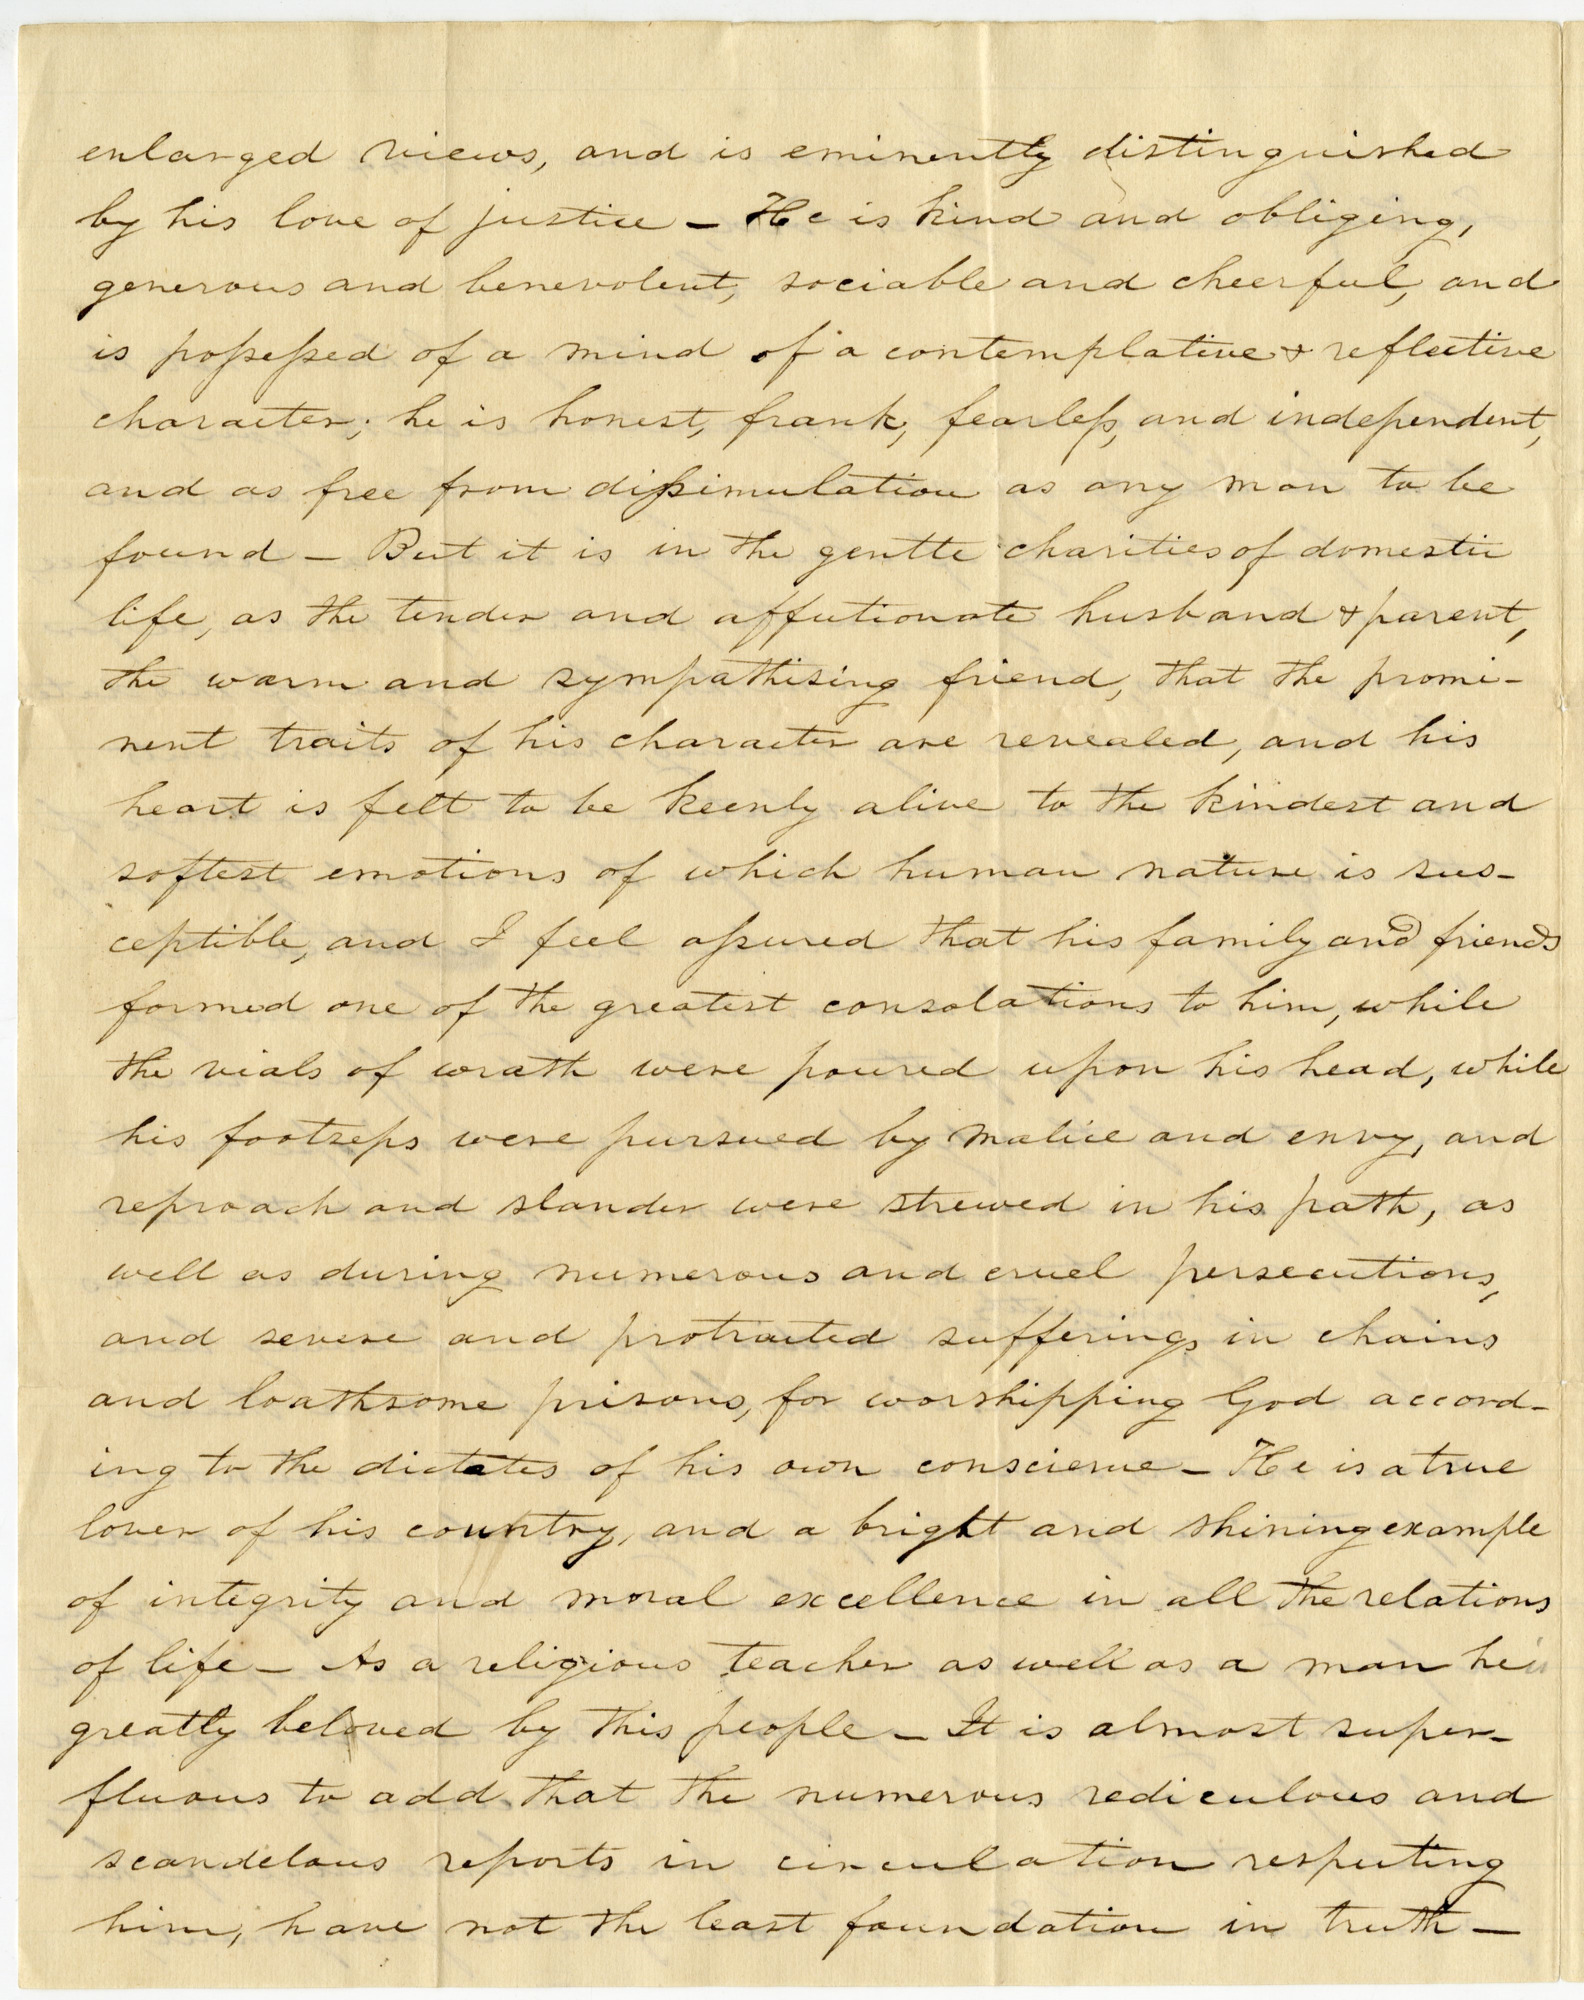 enlarged views, and is eminently distinguished
by his love of justice – He is kind and obliging,
generous and benevolent, sociable and cheerful, and
is poſseſsed of a mind of a contemplative & reflective
character; he is honest, frank, fearleſs, and independent,
and as free from diſsimulation as any man to be
found – But it is in the gentle charities of domestic
life, as the tender and affectionate husband & parent,
the warm and sympathising friend, that the promi-
nent traits of his character are revealed, and his
heart is felt to be keenly alive to the kindest and
softest emotions of which human nature is sus-
ceptible, and I feel aſsured that his family and friends
formed one of the greatest consolations to him, while
the vials of wrath were poured upon his head, while
his footseps were pursued by malice and envy, and
reproach and slander were strewed in his path, as
well as during numerous and cruel persecutions,
and severe and protracted sufferings in chains
and loathsome prisons, for worshipping God accord-
ing to the dictates of his own conscience – He is a true
lover of his country, and a bright and shining example
of integrity and moral excellence in all the relations
of life – As a religious teacher as well as a man he is
greatly beloved by this people – It is almost super-
fluous to add that the numerous rediculous and
scandelous reports in circulation respecting
him, have not the least foundation in truth –